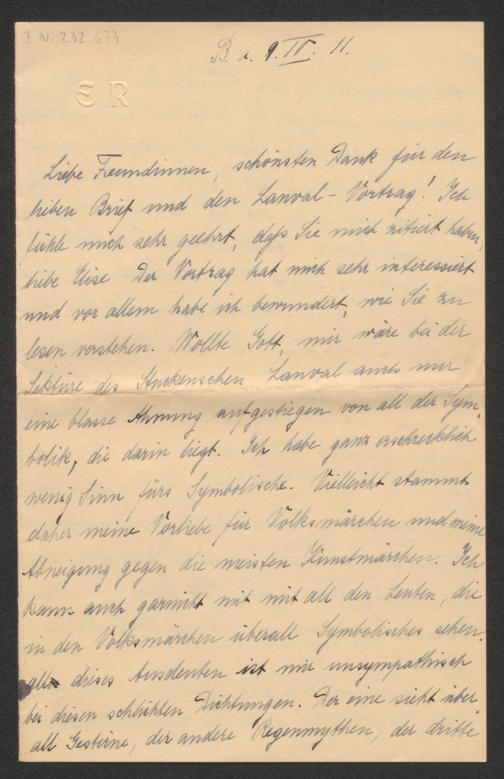 I.N. 232.633
B. a. 9. IV. 11.
E R
Liebe Freundinnen, schönsten Dank für den
lieben Brief und den Lanval-Vortrag! Ich
fühle mich sehr geehrt, daß Sie mich zitiert haben,
liebe Elise. Der Vortrag hat mich sehr interessiert
und vor allem habe ich bewundert, wie Sie zu
lesen verstehen. Wollte Gott, mir wäre bei der
Lektüre des Stuckenschen Lanval auch nur
eine blasse Ahnung aufgestiegen von all der Sym-
bolik, die darin liegt. Ich habe ganz erschrecklich
wenig Sinn fürs Symbolische. Vielleicht stammt
daher meine Vorliebe für Volksmärchen und meine
Abneigung gegen die meisten Kunstmärchen. Ich
kann auch garnicht mit mit all den Leuten, die
in den Volksmärchen überall Symbolisches sehen.
all dieses Ausdeuten ist mir unsympathisch
bei diesen schlichten Dichtungen. Der eine sieht über-
all Gestirne, der andere Regenmythen, der dritte